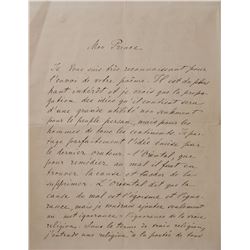 Mon Prince,
Je vous suis très reconnaissant pour
l'envoi de votre poème. Il est du plus
haut intérêt et je crois que la propa-
gation des idées qu'il contient sera
d'une grande utilité non seulement
pour le peuple persan, mais pour les
hommes de tous les continents. Je par-
tage parfaitement l'idée émise par
le dernier orateur: l'Oriental, que
pour remédier au mal il faut en
trouver la cause et tâcher de la
supprimer. L'oriental dit que la
cause du mal est l'égoïsme et l'igno-
rance, mais je voudrais ajouter seulement au
mot ignorance: l'ignorance de la vraie
religion. Sous le terme de vraie religion
j'entends une religion à la portée de tous